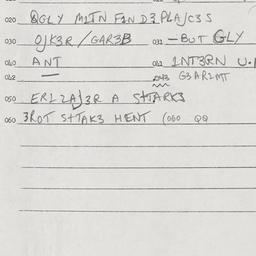 020 QGLY M1TN F1N D3 PLAJC3 S
030 OJK3R / GAR3B 031 — BUT GLY
040 ANT 041 1NT3RN U.
042 043 G3AR1MT
050 ER1ZAJ3R A STTARK3
060 3ROT STTAK3 HENT (060 QQ